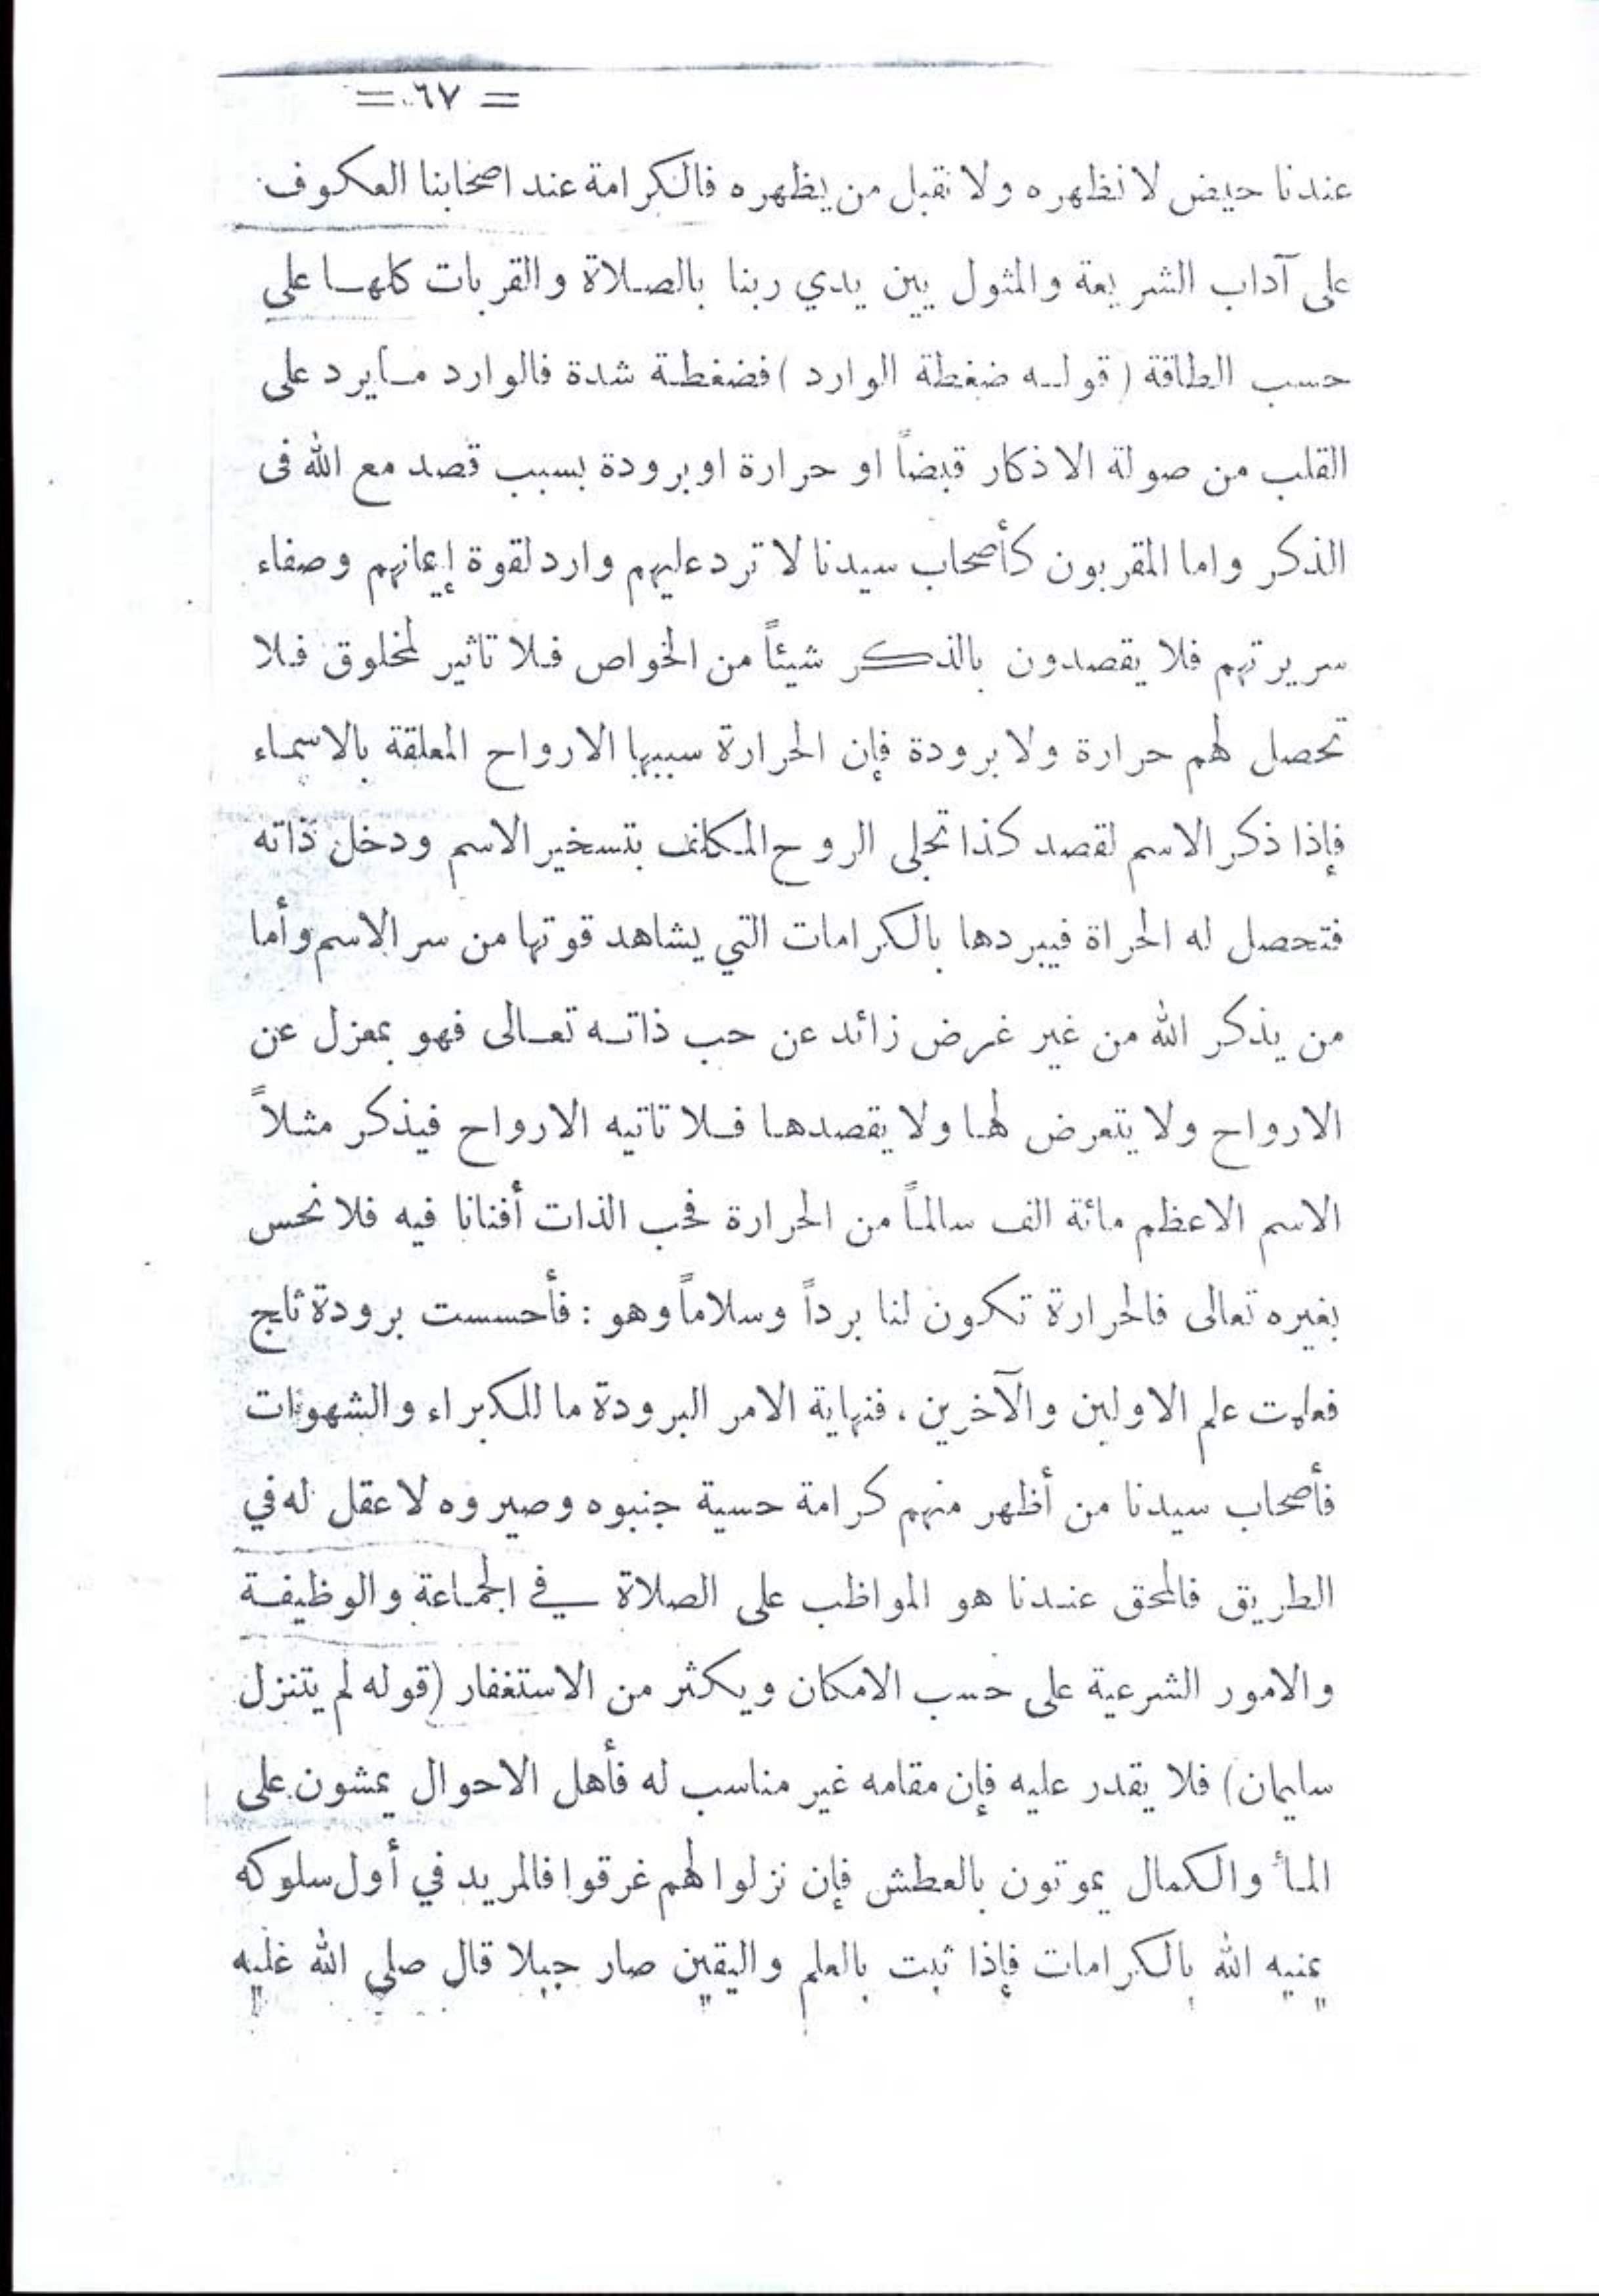 = ٦٧ =
عندنا حيض لا نظهره ولا نقبل من يظهره فالكرامة عند اصحابنا العكوف
على آداب الشريعة والمثول بين يدي ربنا بالصلاة والقربات كلها على
حسب الطاقة ( قوله ضغطة الوارد ) فضغطة شدة فالوارد مايرد على
القلب من صولة الاذكار قبضاً او حرارة او برودة بسبب قصد مع الله فى
الذكر واما المقربون كأصحاب سيدنا لا ترد عليهم وارد لقوة إيمانهم وصفاء
سريرتهم فلا يقصدون بالذكر شيئاً من الخواص فلا تاثير لمخلوق فلا
تحصل لهم حرارة ولا برودة فإن الحرارة سببها الارواح المعلقة بالاسماء
فإذا ذكر الاسم لقصد كذا تجلى الروح المكلف بتسخير الاسم ودخل ذاته
فتحصل له الحراة فيبردها بالكرامات التي يشاهد قوتها من سر الاسم وأما
من يذكر الله من غير غرض زائد عن حب ذاته تعالى فهو بمعزل عن
الارواح ولا يتعرض لها ولا يقصدها فلا تاتيه الارواح فيذكر مثلاً
الاسم الاعظم مائة الف سالماً من الحرارة فحب الذات أفنانا فيه فلا نحس
بغيره تعالى فالحرارة تكون لنا برداً وسلاماً وهو : فأحسست برودة ثلج
فعلمت علم الاولين والآخرين ، فنهاية الامر البرودة ما للكبراء والشهوات
فأصحاب سيدنا من أظهر منهم كرامة حسية جنبوه وصيروه لا عقل له في
الطريق فالمحق عندنا هو المواظب على الصلاة في الجماعة والوظيفة
والامور الشرعية على حسب الامكان ويكثر من الاستغفار (قوله لم يتنزل
سليمان) فلا يقدر عليه فإن مقامه غير مناسب له فأهل الاحوال يمشون على
المأ والكمال يموتون بالعطش فإن نزلوا لهم غرقوا فالمريد في أول سلوكه
يمنيه الله بالكرامات فإذا ثبت بالعلم واليقين صار جبلا قال صلى الله عليه